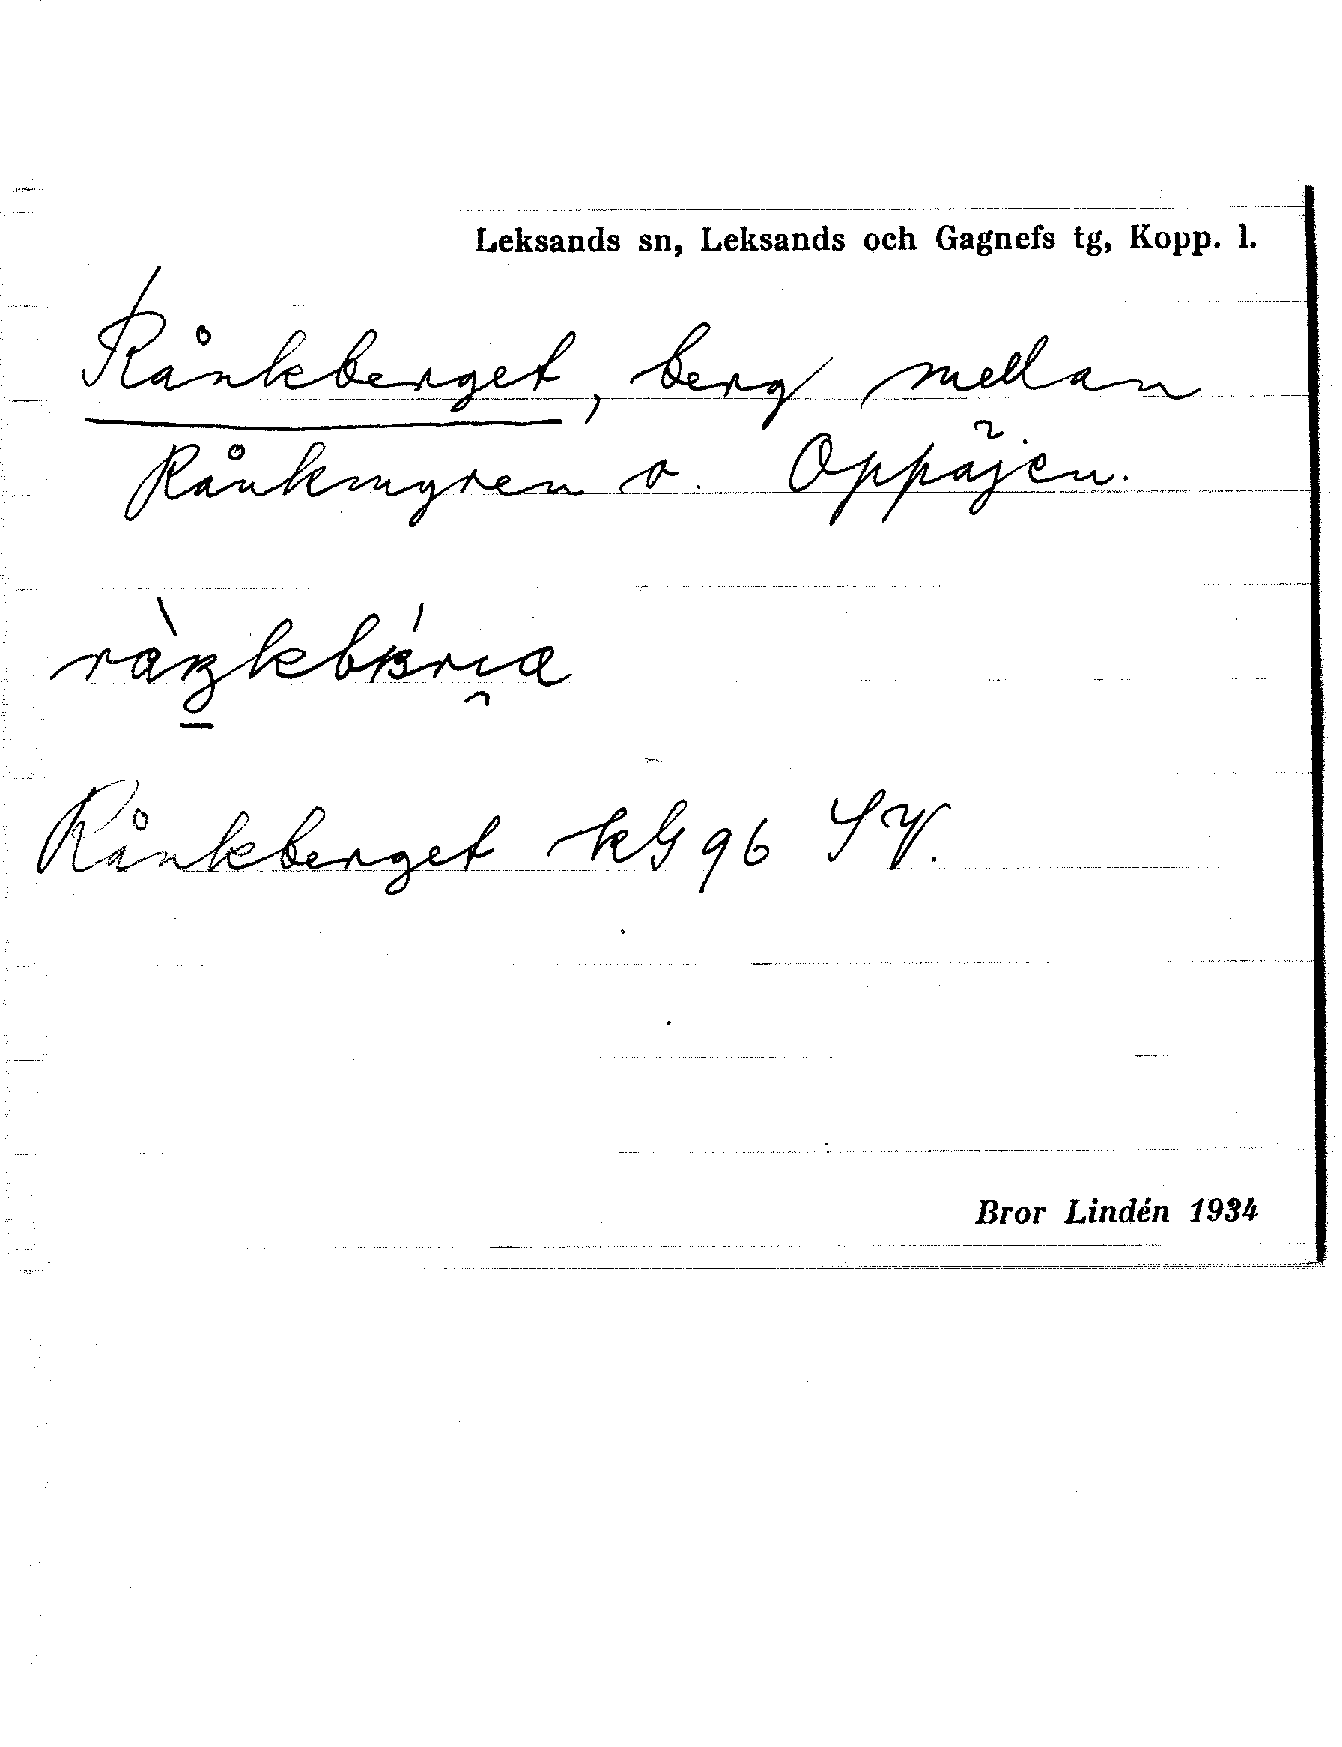 Leksands sn, Leksands och Gagnefs tg, Kopp. l.
Rånkberget, berg mellan
Rånkmyren o. Oppäjen.
Rånkberget kG 96 SV.
Bror Lindén 1934